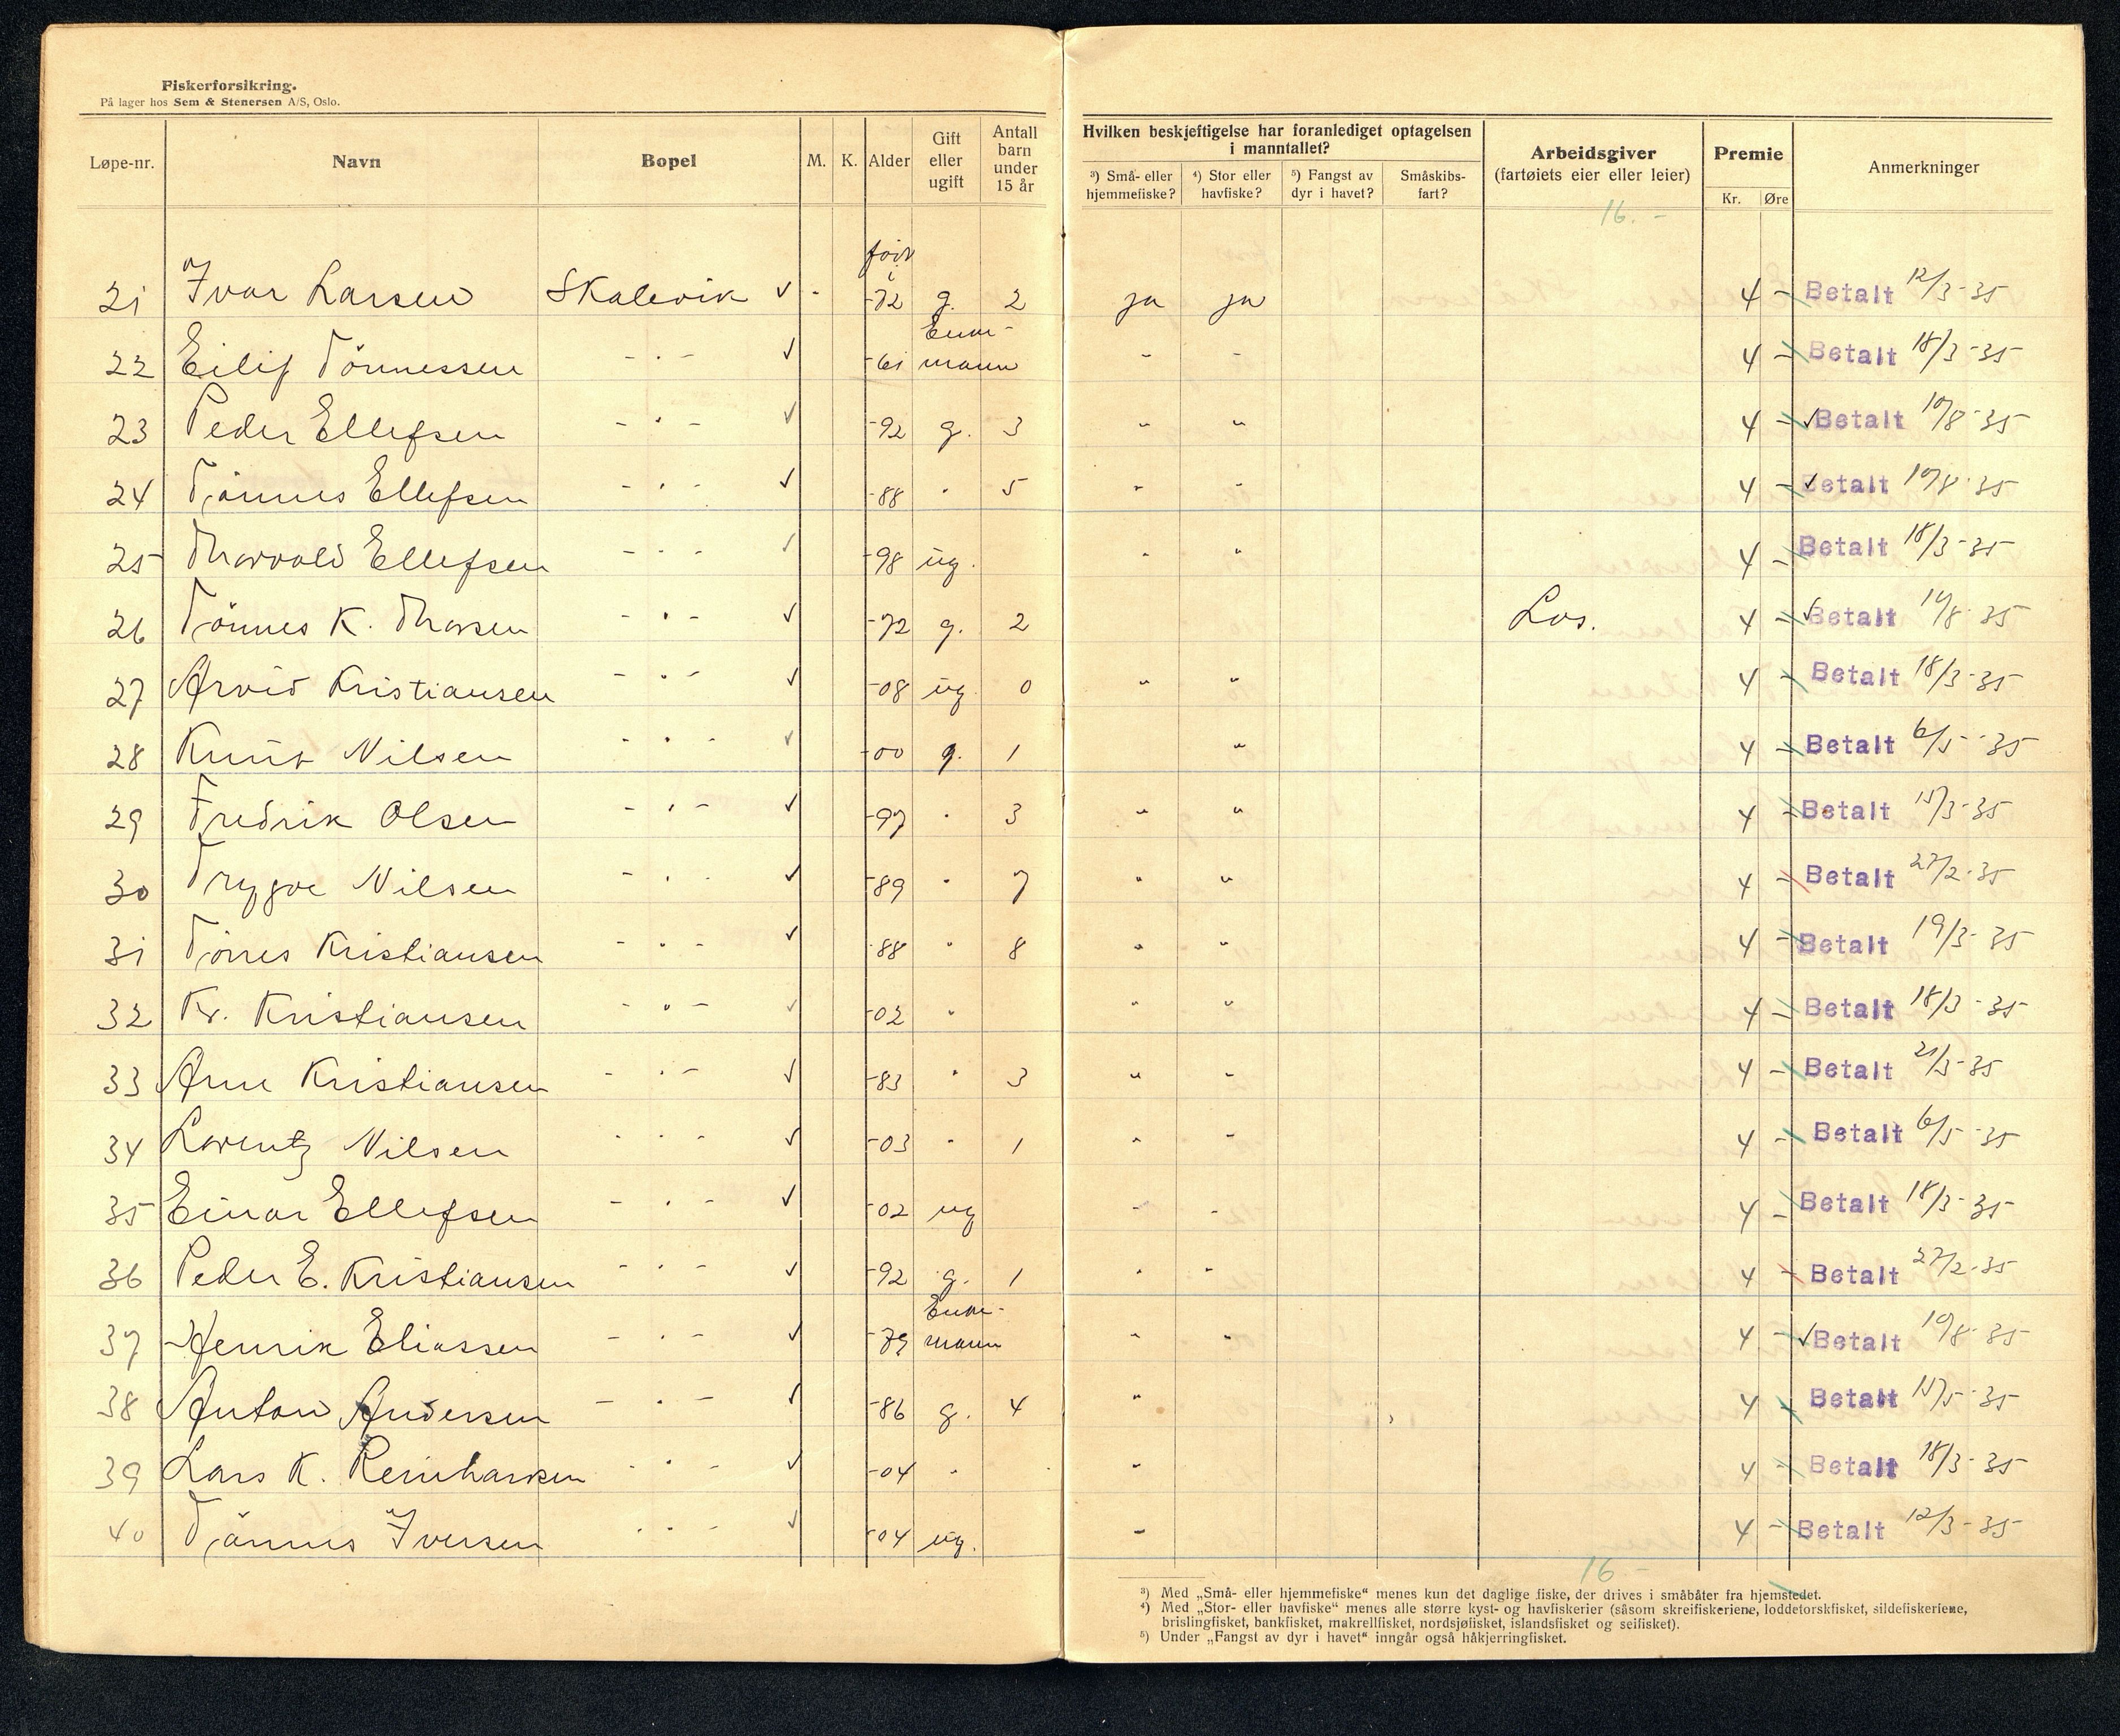 Fiskerforsikring.
På lager hos Sem & Stenersen A/S, Oslo.
Løpe-nr. Navn Bopel M. K. Alder Gift eller ugift Antall barn under 15 år Hvilken beskjeftigelse har foranlediget optagelsen i manntallet? ³) Små- eller hjemmefiske? ⁴) Stor eller havfiske? ⁵) Fangst av dyr i havet? Småskibs-fart? Arbeidsgiver (fartøiets eier eller leier) Premie Kr. Øre Anmerkninger
16.-
født
21 Ivar Larsen Skalevik ✓ - -72 g. 2 ja ja 4 - Betalt 12/3-35
22 Eilif Tönnessen - " - ✓ -61 Enkemann " " 4 - Betalt 18/3-35
23 Peder Ellefsen - " - ✓ -92 g. 3 " " 4 - ✓ Betalt 10/8-35
24 Tönnes Ellefsen - " - ✓ -88 " 5 " " 4 - ✓ Betalt 10/8-35
25 Thorvald Ellefsen - " - ✓ -98 ug. " " 4 - Betalt 18/3-35
26 Tönnes K. Thorsen - " - ✓ -72 g. 2 Los. 4 - ✓ Betalt 19/8-35
27 Arvid Kristiansen - " - ✓ -08 ug 0 " " 4 - Betalt 18/3-35
28 Knut Nilsen - " - ✓ -00 g. 1 " 4 - Betalt 6/5-35
29 Fredrik Olsen - " - ✓ -97 " 3 " " 4 - Betalt 15/3-35
30 Trygve Nilsen - " - ✓ -89 " 7 " " 4 - Betalt 27/2-35
31 Törres Kristiansen - " - ✓ -88 " 8 " " 4 - Betalt 19/3-35
32 Kr. Kristiansen - " - ✓ -02 " " " 4 - Betalt 18/3-35
33 Arne Kristiansen - " - ✓ -83 " 3 " " 4 - Betalt 21/3-35
34 Lorentz Nilsen - " - ✓ -03 " 1 " " 4 - Betalt 6/5-35
35 Einar Ellefsen - " - ✓ -02 ug " " 4 - Betalt 18/3-35
36 Peder E. Kristiansen - " - ✓ -92 g. 1 " " 4 - Betalt 27/2-35
37 Henrik Eliassen - " - ✓ -79 Enkemann " " 4 - ✓ Betalt 10/8-35
38 Anton Andersen - " - ✓ -86 g. 4 " 4 - Betalt 15/5-35
39 Lars K. Reinhartsen - " - ✓ -04 " " 4 - Betalt 18/3-35
40 Tönnes Iversen - " - ✓ -04 ug. " 4 - Betalt 12/3-35
16.-
³) Med „Små- eller hjemmefiske“ menes kun det daglige fiske, der drives i småbåter fra hjemstedet.
⁴) Med „Stor- eller havfiske“ menes alle større kyst- og havfiskerier (såsom skreifiskeriene, loddetorskfisket, sildefiskeriene,
brislingfisket, bankfisket, makrellfisket, nordsjøfisket, islandsfisket og seifisket).
⁵) Under „Fangst av dyr i havet“ inngår også håkjerringfisket.